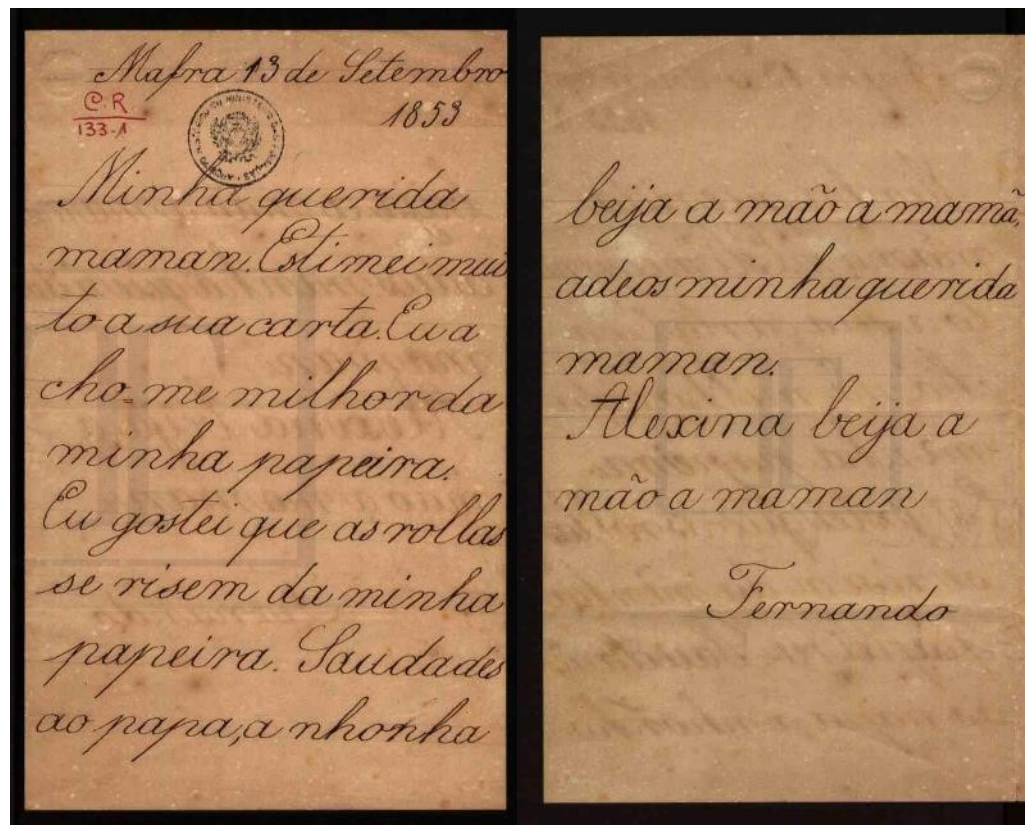 Mafra 13 de Setembro
1853
C.R.
133-1
Minha querida
maman. Estimei mui
to a sua carta. Eu a
cho-me milhor da
minha papeira.
Eu gostei que as rollas
se risem da minha
papeira. Saudades
ao papa, a nhonha
beija a mão a mamã,
adeos minha querida
maman.
Alexina beija a
mão a maman
Fernando